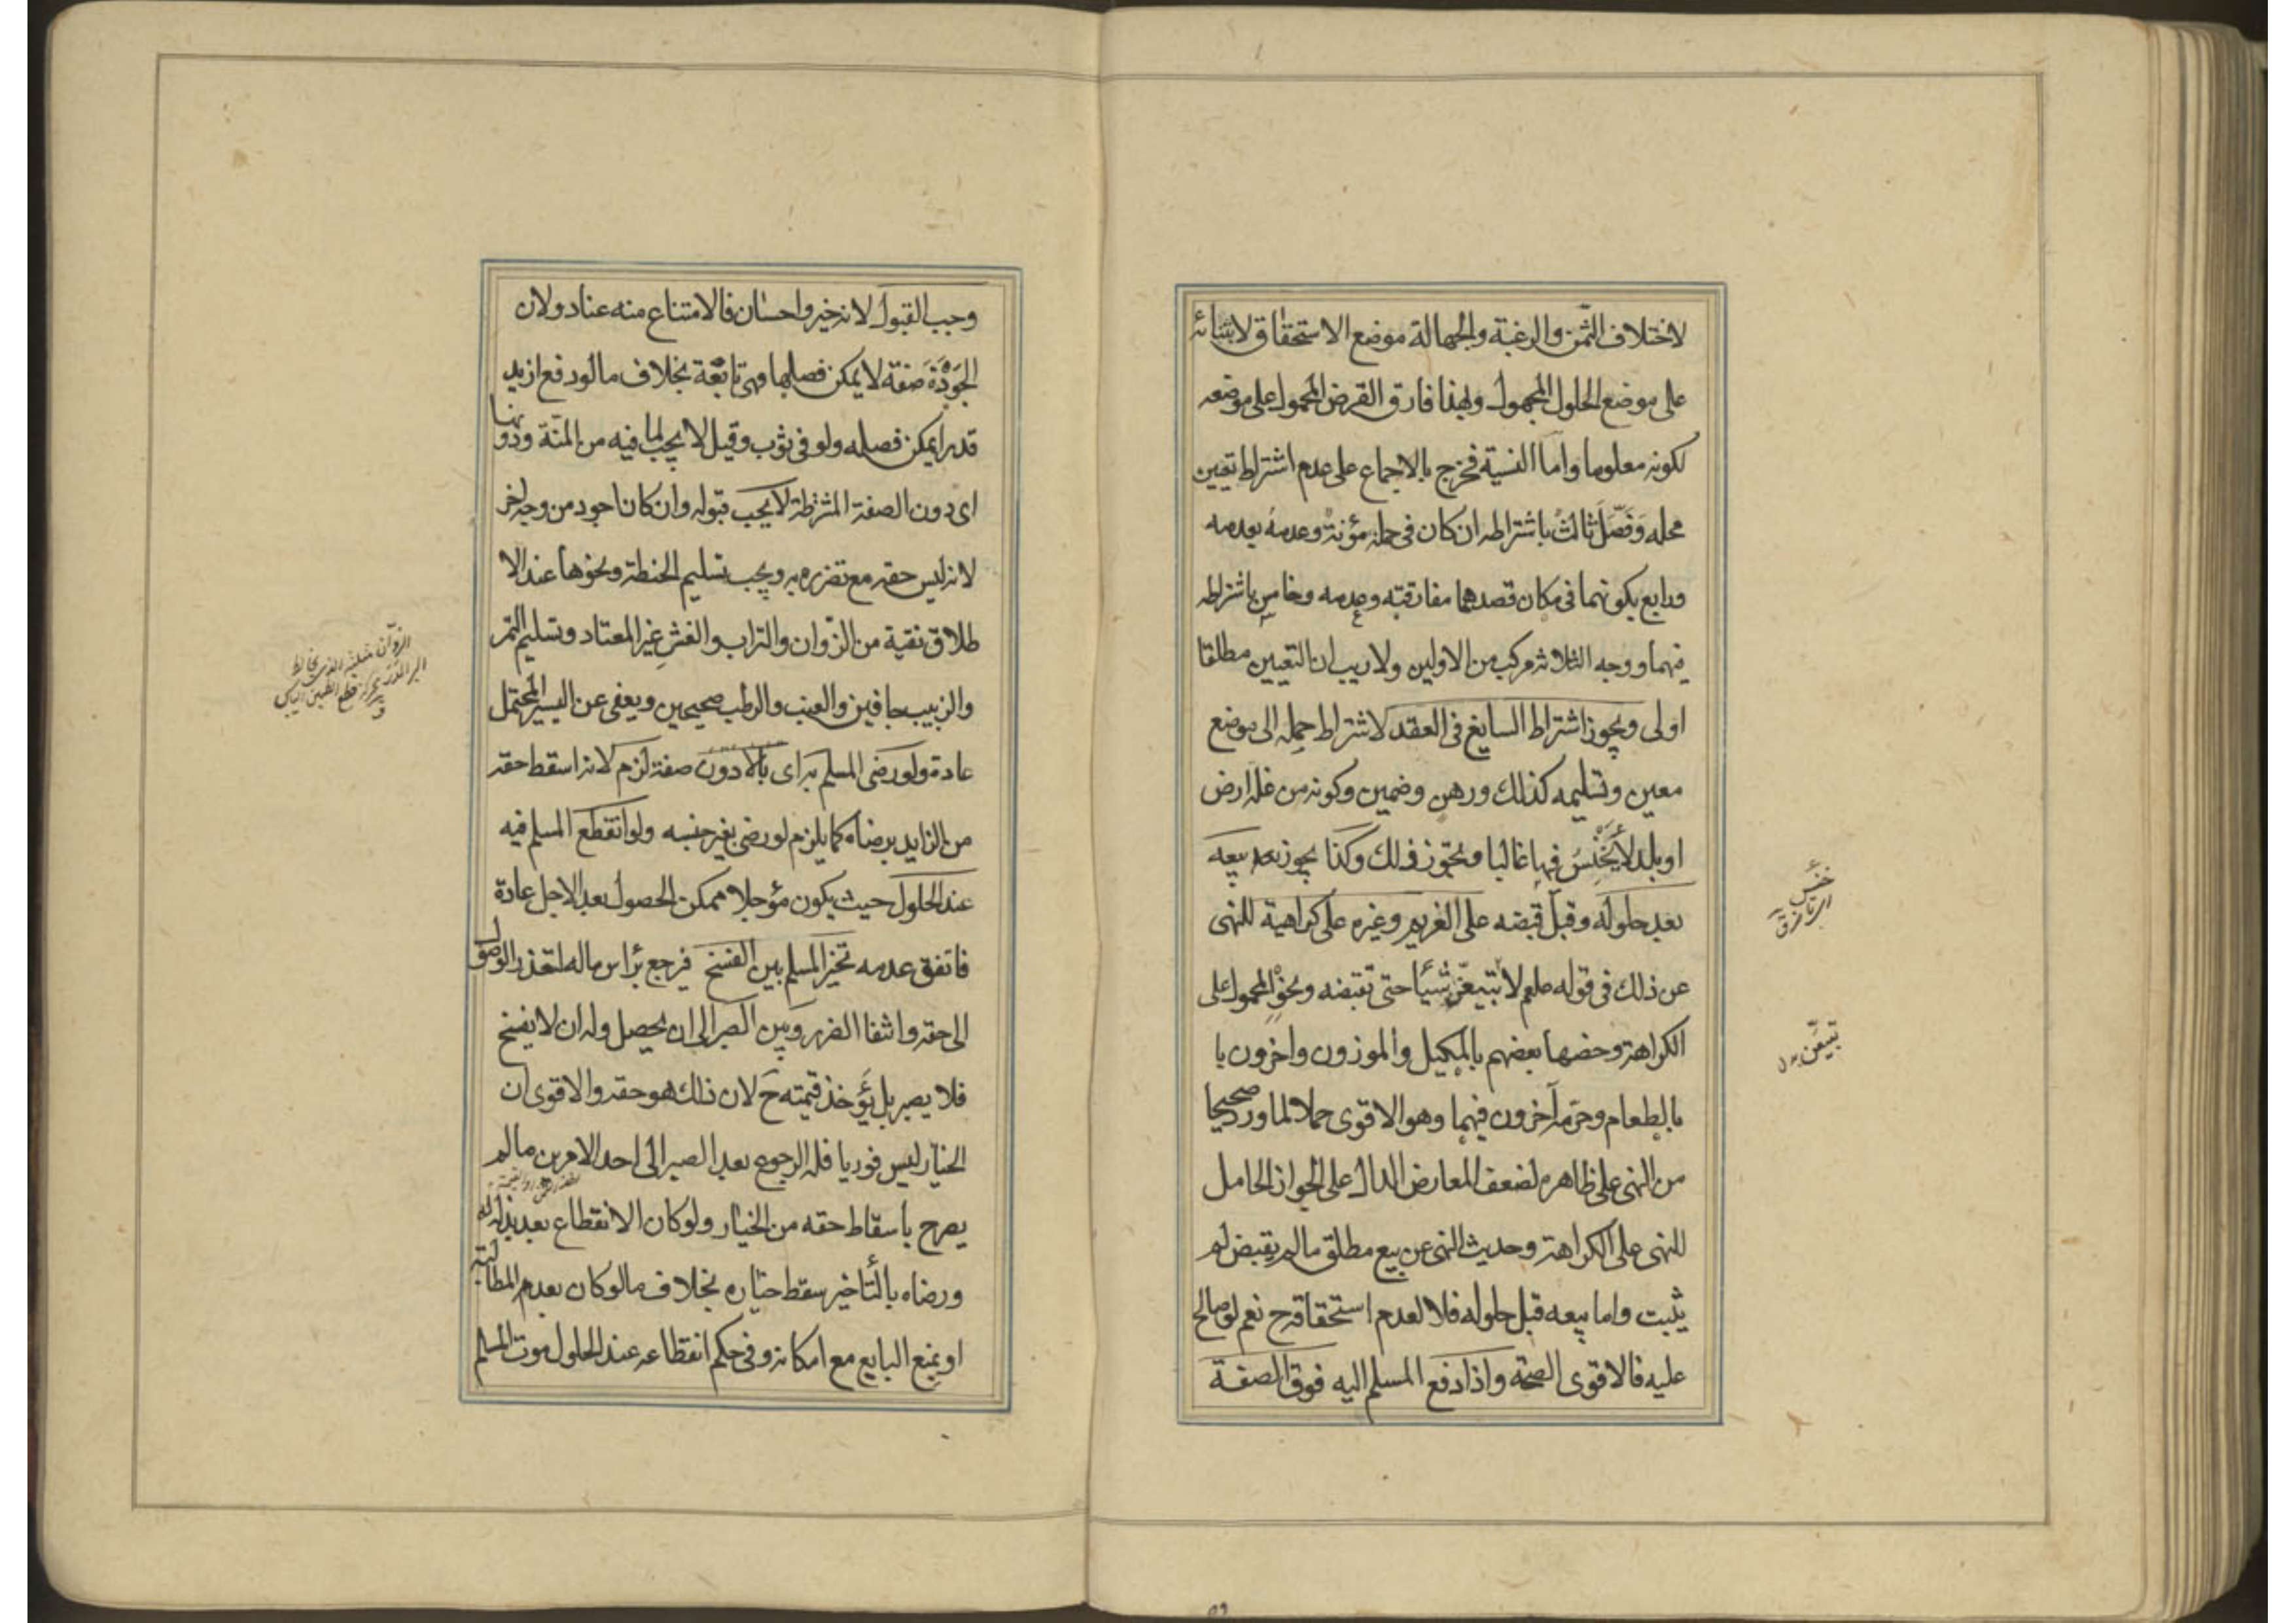 لاختلاف الثمن والرغبة والجهالة موضع الاستحقاق لابتنائه
على موضع الحلول المجهول وبهذا فارق القرض المحمول على موضعه
لكونه معلوما واما النسية فخرج بالاجماع على عدم اشتراط تعيين
محله وَفَصَّلَ ثالثٌ باشتراطه ان كان في حمله مؤنة وعدمه بعدمه
ورابع بكونهما في مكان قصدهما مفارقته وعدمه وخامس باشتراطه
فيهما ووجه الثلاثه مركب من الاولين ولا ريب ان التعيين مطلقا
اولى ويجوز اشتراط السايغ في العقد لاشتراط حمله الى موضع
معين وتسليمه كذلك ورهن وضمين وكونه من غلة ارض
او بلد لا يَخْنِسُ فيها غالبا ونحو ذلك وكذا يجوز بعد بيعه
بعد حلوله وقبل قبضه على الغريم وغيره على كراهية للنهى
عن ذلك في قوله صلعم لا تبتيعنّ شيئا حتى تقبضه ونحوه المحمول على
الكراهة وخصها بعضهم بالمكيل والموزون واخرون با
بالطعام وحرمه آخرون فيهما وهو الاقوى حملا لما ورد صحيحا
من النهى على ظاهره لضعف المعارض الدال على الجواز الحامل
للنهى على الكراهة وحديث النهى عن بيع مطلق ما لم يقبض لم
يثبت واما بيعه قبل حلوله فلا لعدم استحقاقه ح نعم لو صالح
عليه فالاقوى الصحة واذا دفع المسلم اليه فوق الصفة
خنس
تبيعن
وجب القبول لانه خير واحسان فالامتناع منه عناد ولان
الجَوْدَةَ صفة لا يمكن فصلها فهى تابعة بخلاف ما لو دفع ازيد
قدرا يمكن فصله ولو في ثوب وقيل لا يجب لما فيه من المنّة ودونها
اى دون الصفة المشترطة لا يجب قبوله وان كان اجود من وجه اخر
لانه ليس حقه مع تضرره به ويجب تسليم الحنطة ونحوها عند الا
طلاق نقية من الزوان والتراب والقشر غير المعتاد وتسليم التمر
والزبيب جافين والعنب والرطب صحيحين ويعفى عن اليسير المحتمل
عادة ولو رضى المسلم به اى بالادون صفة لزم لانه اسقط حقه
من الزايد برضاه كما يلزم لو رضى بغير جنسه ولو انقطع المسلم فيه
عند الحلول حيث يكون مؤجلا ممكن الحصول بعد الاجل عادة
فاتفق عدمه تخير المسلم بين الفسخ فرجع براس ماله لتعذر الوصول
الى حقه وانتفا الضرر وبين الصبر الى ان يحصل وله ان لا يفسخ
فلا يصبر بل يؤخذ قيمته ح لان ذلك هو حقه والاقوى ان
الخيار ليس فوريا فله الرجوع بعد الصبر الى احد الامرين ما لم
يصرح باسقاط حقه من الخيار ولو كان الانقطاع بعد بذله له
ورضاه بالتأخير سقط خياره بخلاف ما لو كان بعدم المطالبة
او بمنع البايع مع امكانه وفى حكم انقطاعه عند الحلول موت المسلم